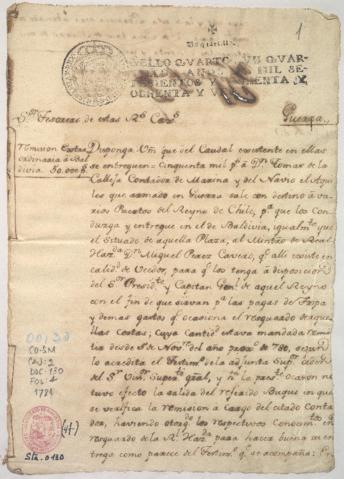 1
SELLO QVARTO, VN QVAR-
TILLO, AÑOS DE MIL SE-
TECIENTOS
OCHENTA Y
S.res Tesoreros de estas R.s Cax.s
Guerra
Remision extra
ordinaria à Val
divia 50.000 p.s
Disponga Vm que del Caudal existente en ellas
se entreguen Cinquenta mil p.s à D.n Tomas de la
Calleja Contador de Marina y del Navio el Aqui
les que armado en Guerra sale con destino à va
rios Puertos del Reyno de Chile, p.a que los con
duzga y entregue en el de Baldivia, igualm.te que
el Situado de aquella Plaza, al Ministro de Real
Haz.da D.n Miguel Perez Cavero, q.e alli existe en
calid.d de Veedor, para q.e los tenga à disposicion
del S.or Presid.te y Capitan Gen.l de aquel Reyno
con el fin de que sirvan p.a las pagas de Tropa
y demas gastos q.e ocasiona el resguardo de aque
llas costas; cuya Cantid.d estava mandada remi
tir desde 6 de Nov.e del año pro.o de 780, segun
lo acredita el Testim.o de la adjunta
del S.or Vis.or Super.te gral, y
tuvo efecto la salida del referido Buque en que
se verifica la remision a cargo del citado Conta
dor, haviendo otorg.do los respectivos Conocim.tos
resguardo de la R.l Haz.da para hacer buena su en
trego como parece del Testim.o q.e se acompaña:
00130
CO-SM
CAJ: 2
DOC: 130
FOL: 4
1781
(4f)
Sta. 0130